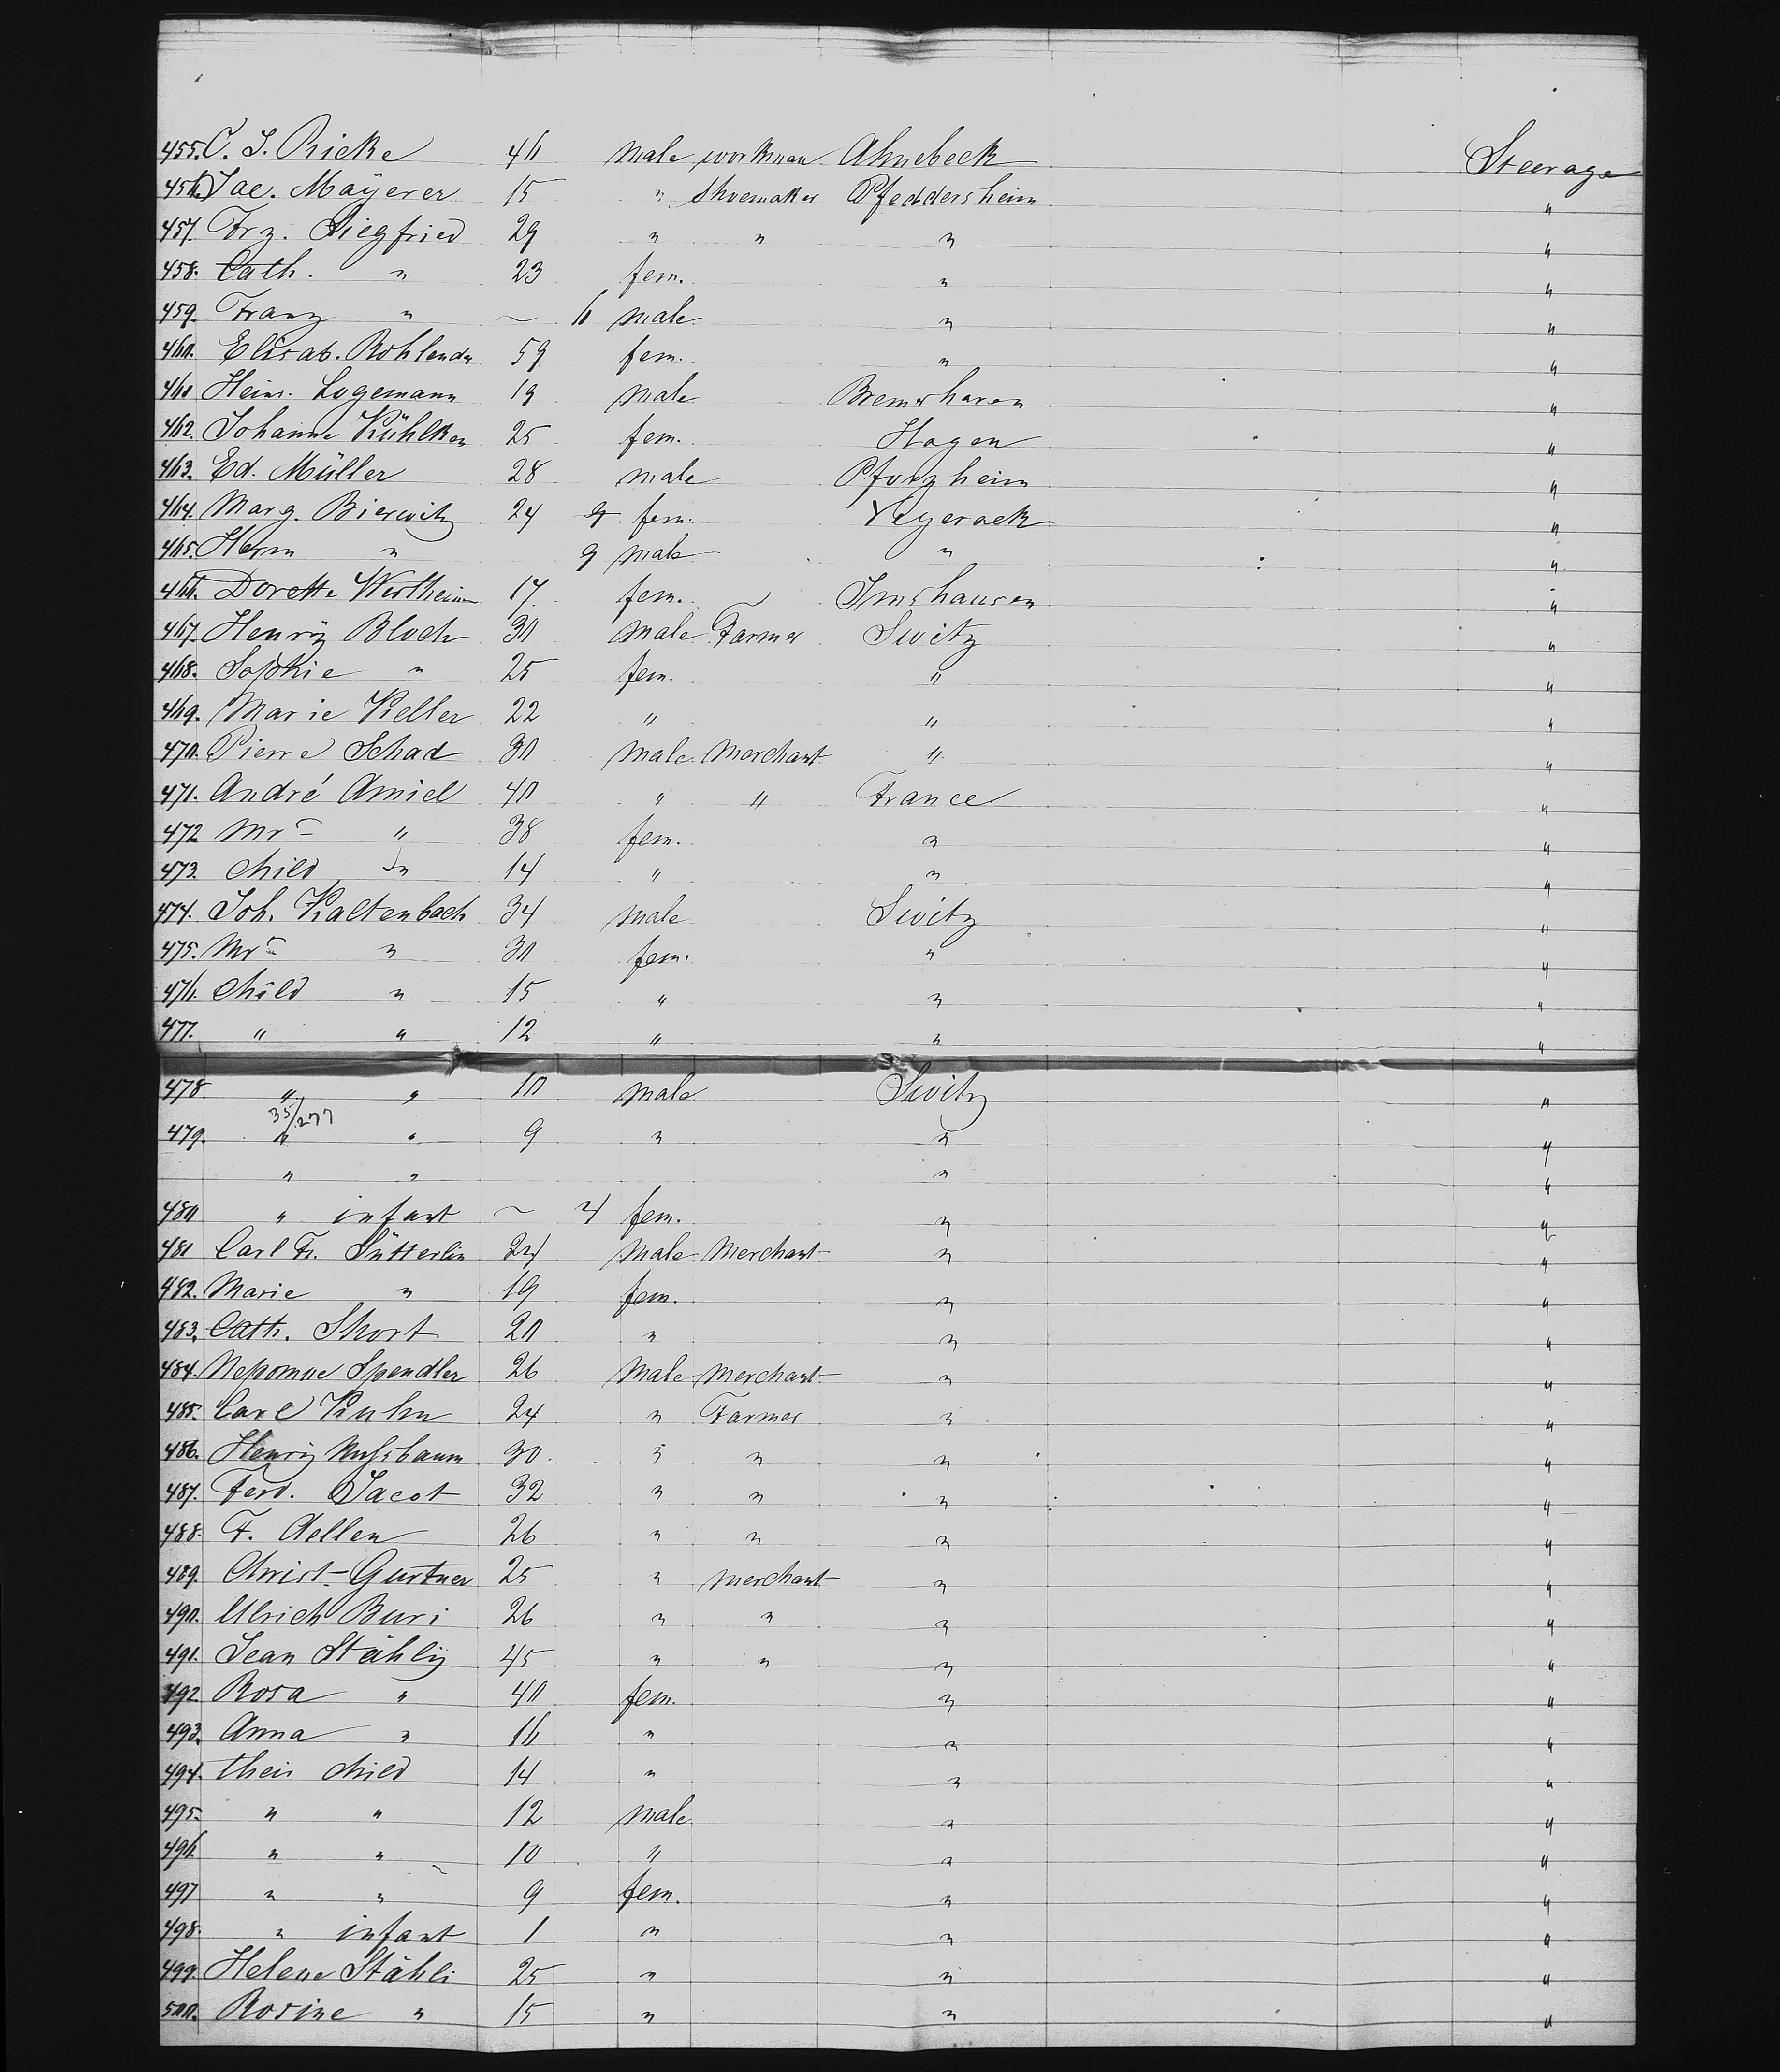 455. C. J. Ricke 46 male workman Ahnebeck Steerage
456. Jac. Mayerer 15 " Shoemaker Pfeddersheim "
457. Frz. Siegfried 29 " " " "
458. Cath. " 23 fem. " "
459. Franz " ~ 6 male " "
460. Elisab. 59 fem. " "
461 Heinr. Logemann 19 male Bremerhaven "
462. Johanne Kühlken 25 fem. Hagen "
463. Ed. Müller 28 male Pforzheim "
464. Marg. Bierwitz 24 fem. Vegesack "
465. Herm " 9 male " "
466. Dorette Wertheim 17 fem. Imshausen "
467. Henry Bloch 30 male Farmer Switz "
468. Sophie " 25 fem. " "
469. Marie Keller 22 " " "
470. Pierre Schad 30 male Merchant " "
471. André Amiel 40 " " France "
472 Mrs " 38 fem. " "
473. child " 14 " " "
474. Joh. Kaltenbach 34 male Switz "
475. Mrs " 30 fem. " "
476. child " 15 " " "
477. " " 12 " " "
478 " " 10 male Switz "
35/277
479. " " 9 " " "
" " " "
480 " infant ~ 4 fem. " "
481 Carl Fr. Sütterlin 24 male Merchant " "
482. Marie " 19 fem. " "
483. Cath. Short 20 " " "
484. Nepomuc Spendler 26 male Merchant " "
485. Carl Kuhn 24 " Farmer " "
486. Henry Nussbaum 30 " " " "
487. Ferd. Jacot 32 " " " "
488. F. Aellen 26 " " " "
489. Christ. Gurtner 25 " merchant " "
490. Ulrich Buri 26 " " " "
491. Jean Stähly 45 " " " "
492 Rosa " 40 fem. " "
493. Anna " 16 " " "
494. their child 14 " " "
495. " " 12 male " "
496 " " 10 " " "
497 " " 9 fem. " "
498. " infant 1 " " "
499. Helene Stähli 25 " " "
500. Rosine " 15 " " "